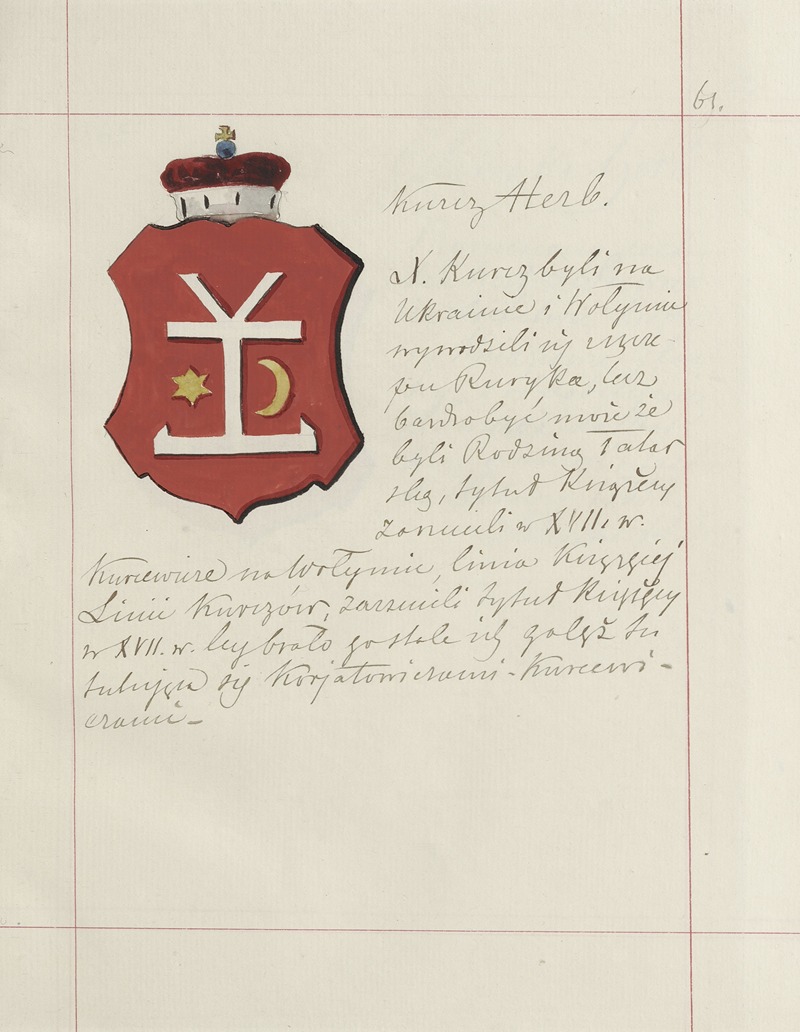 61.
Kurcz Herb.
X. Kurcz byli na
Ukrainie i Wołyniu
wywodzili się
Ruryka, lecz
bardzo być może że
byli Rodziną Tatar
ską, tytuł Książęcy
zarzucili w XVII. w.
Kurcewicze na Wołyniu, linia
Linii Kurczów, zarzucili tytuł Książęcy
w XVII. w. brało go stale ich gałęź tu
tułująca się Korjatowiczami-Kurcewi-
czami-